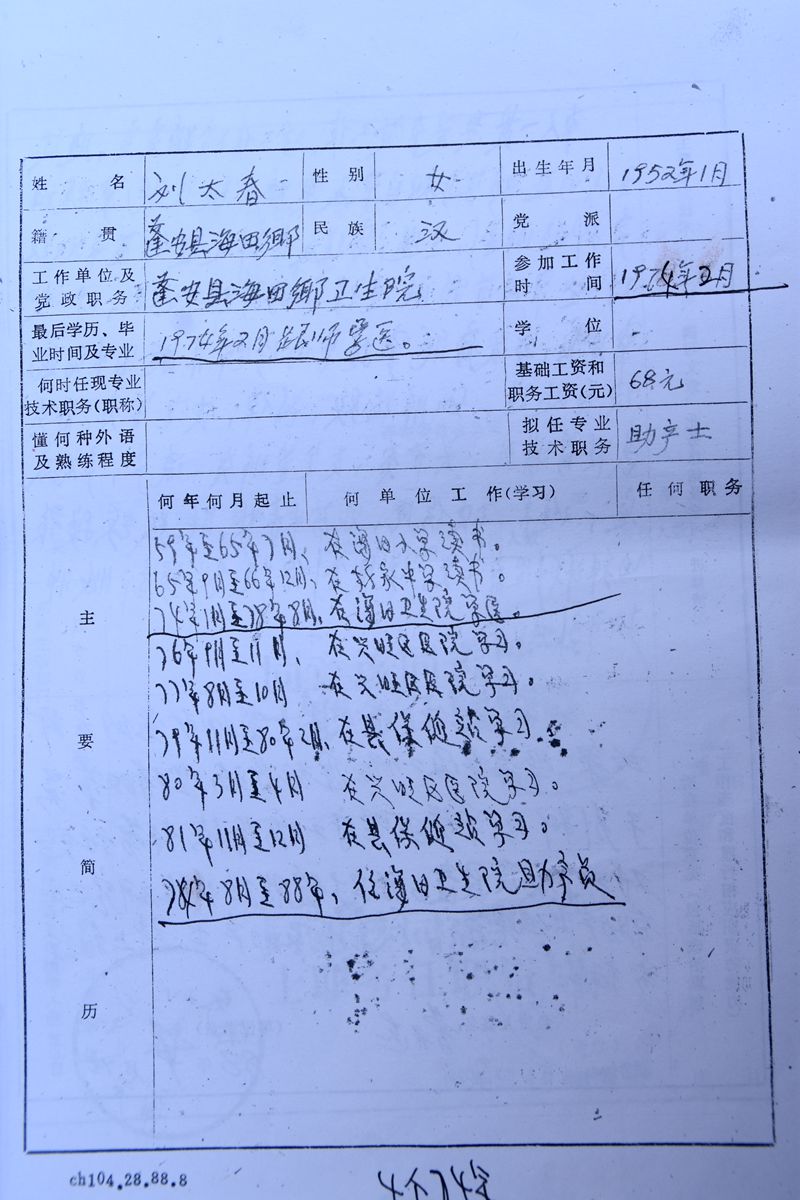 姓名 刘太春 性别 女 出生年月 1952年1月
籍贯 蓬安县海田鄉 民族 汉 党派
工作单位及党政职务 蓬安县海田鄉卫生院 参加工作时间 1974年2月
最后学历、毕业时间及专业 1974年2月 学医。 学位
何时任现专业技术职务(职称) 基础工资和职务工资(元) 68元
懂何种外语及熟练程度 拟任专业技术职务 助产士
主要简历
何年何月起止 何单位工作(学习) 任何职务
59年至65年7月、在海田小学读书。
65年9月至66年12月、在 中学读书。
74年1月至78年8月、在海田卫生院学医。
76年9月至11月、在兴旺区医院学习。
77年8月至10月 在兴旺区医院学习。
79年11月至80年2月、在县保健站学习
80年3月至4月 在兴旺区医院学习。
81年11月至12月 在县保健站学习。
78年8月至88年、任海田卫生院助产员
ch104.28.88.8